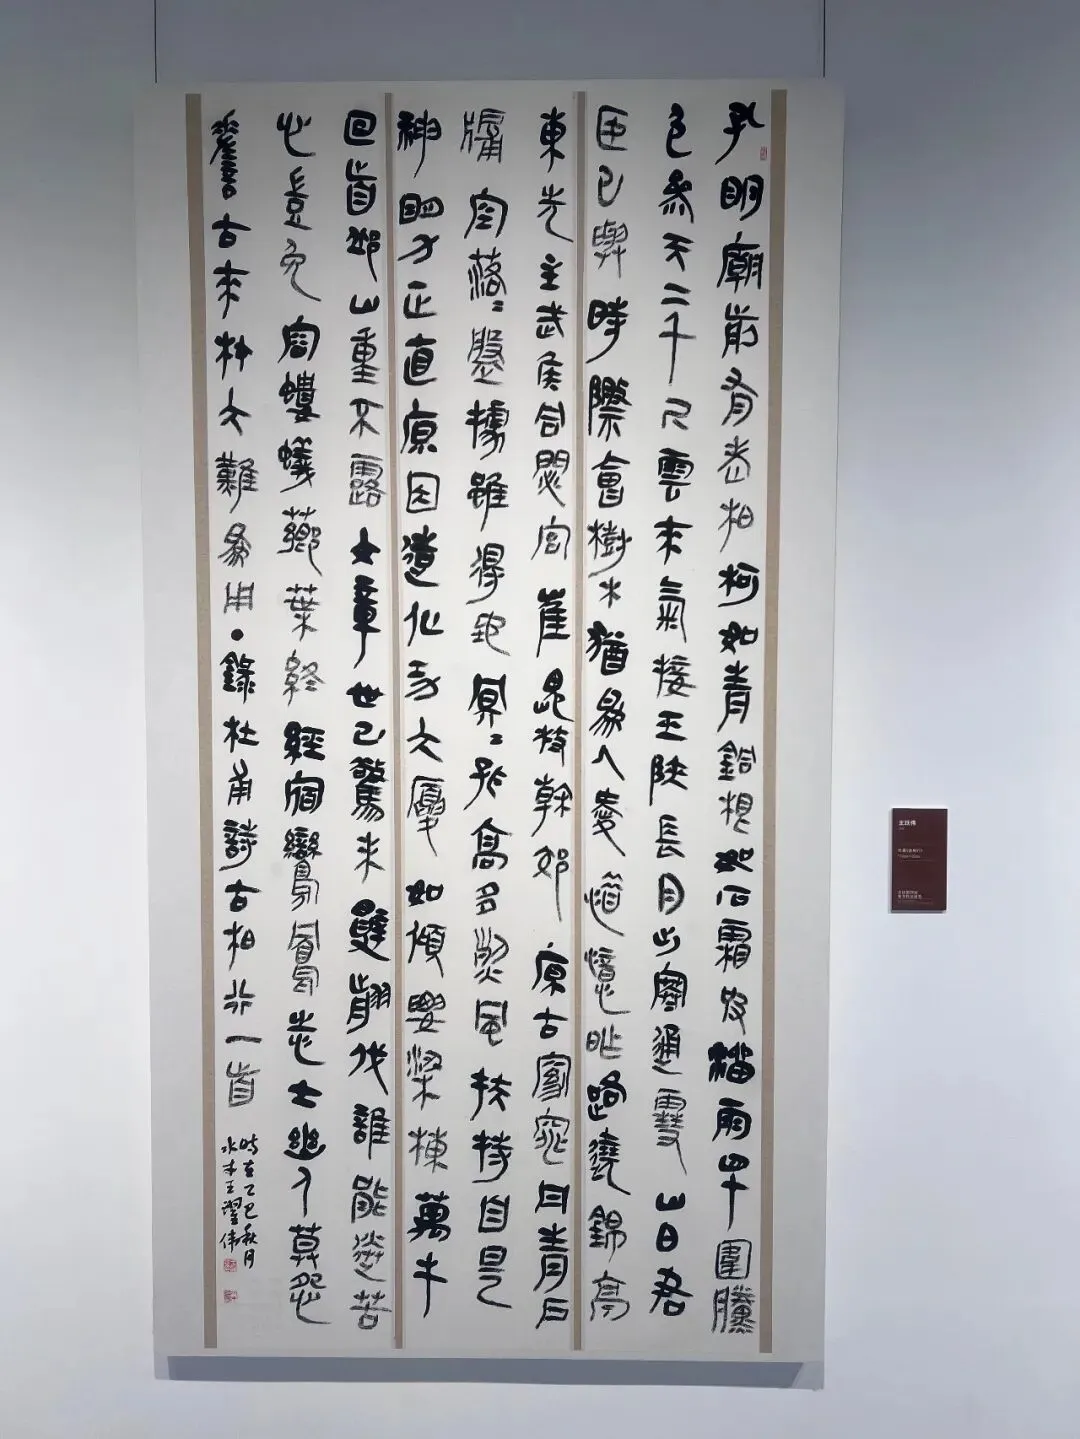 孔明廟前有老柏柯如青銅根如石霜皮溜雨四十圍黱
色參天二千尺雲來氣接巫陝長月出寒通雪山白君
臣已與時際會樹木猶為人愛惜憶昨路繞錦亭
東先主武侯同閟宮崔嵬枝幹郊原古窈窕丹青戶
牖空落落盤據雖得地冥冥孤高多烈風扶持自是
神明力正直原因造化功大廈如傾要梁棟萬牛
回首邱山重不露文章世已驚未辭翦伐誰能送苦
心豈免容螻蟻薌葉終經宿鸞鳳志士幽人莫怨
嗟古來材大難為用錄杜甫詩古柏行一首
時在乙巳秋月
王躍偉
王跃伟